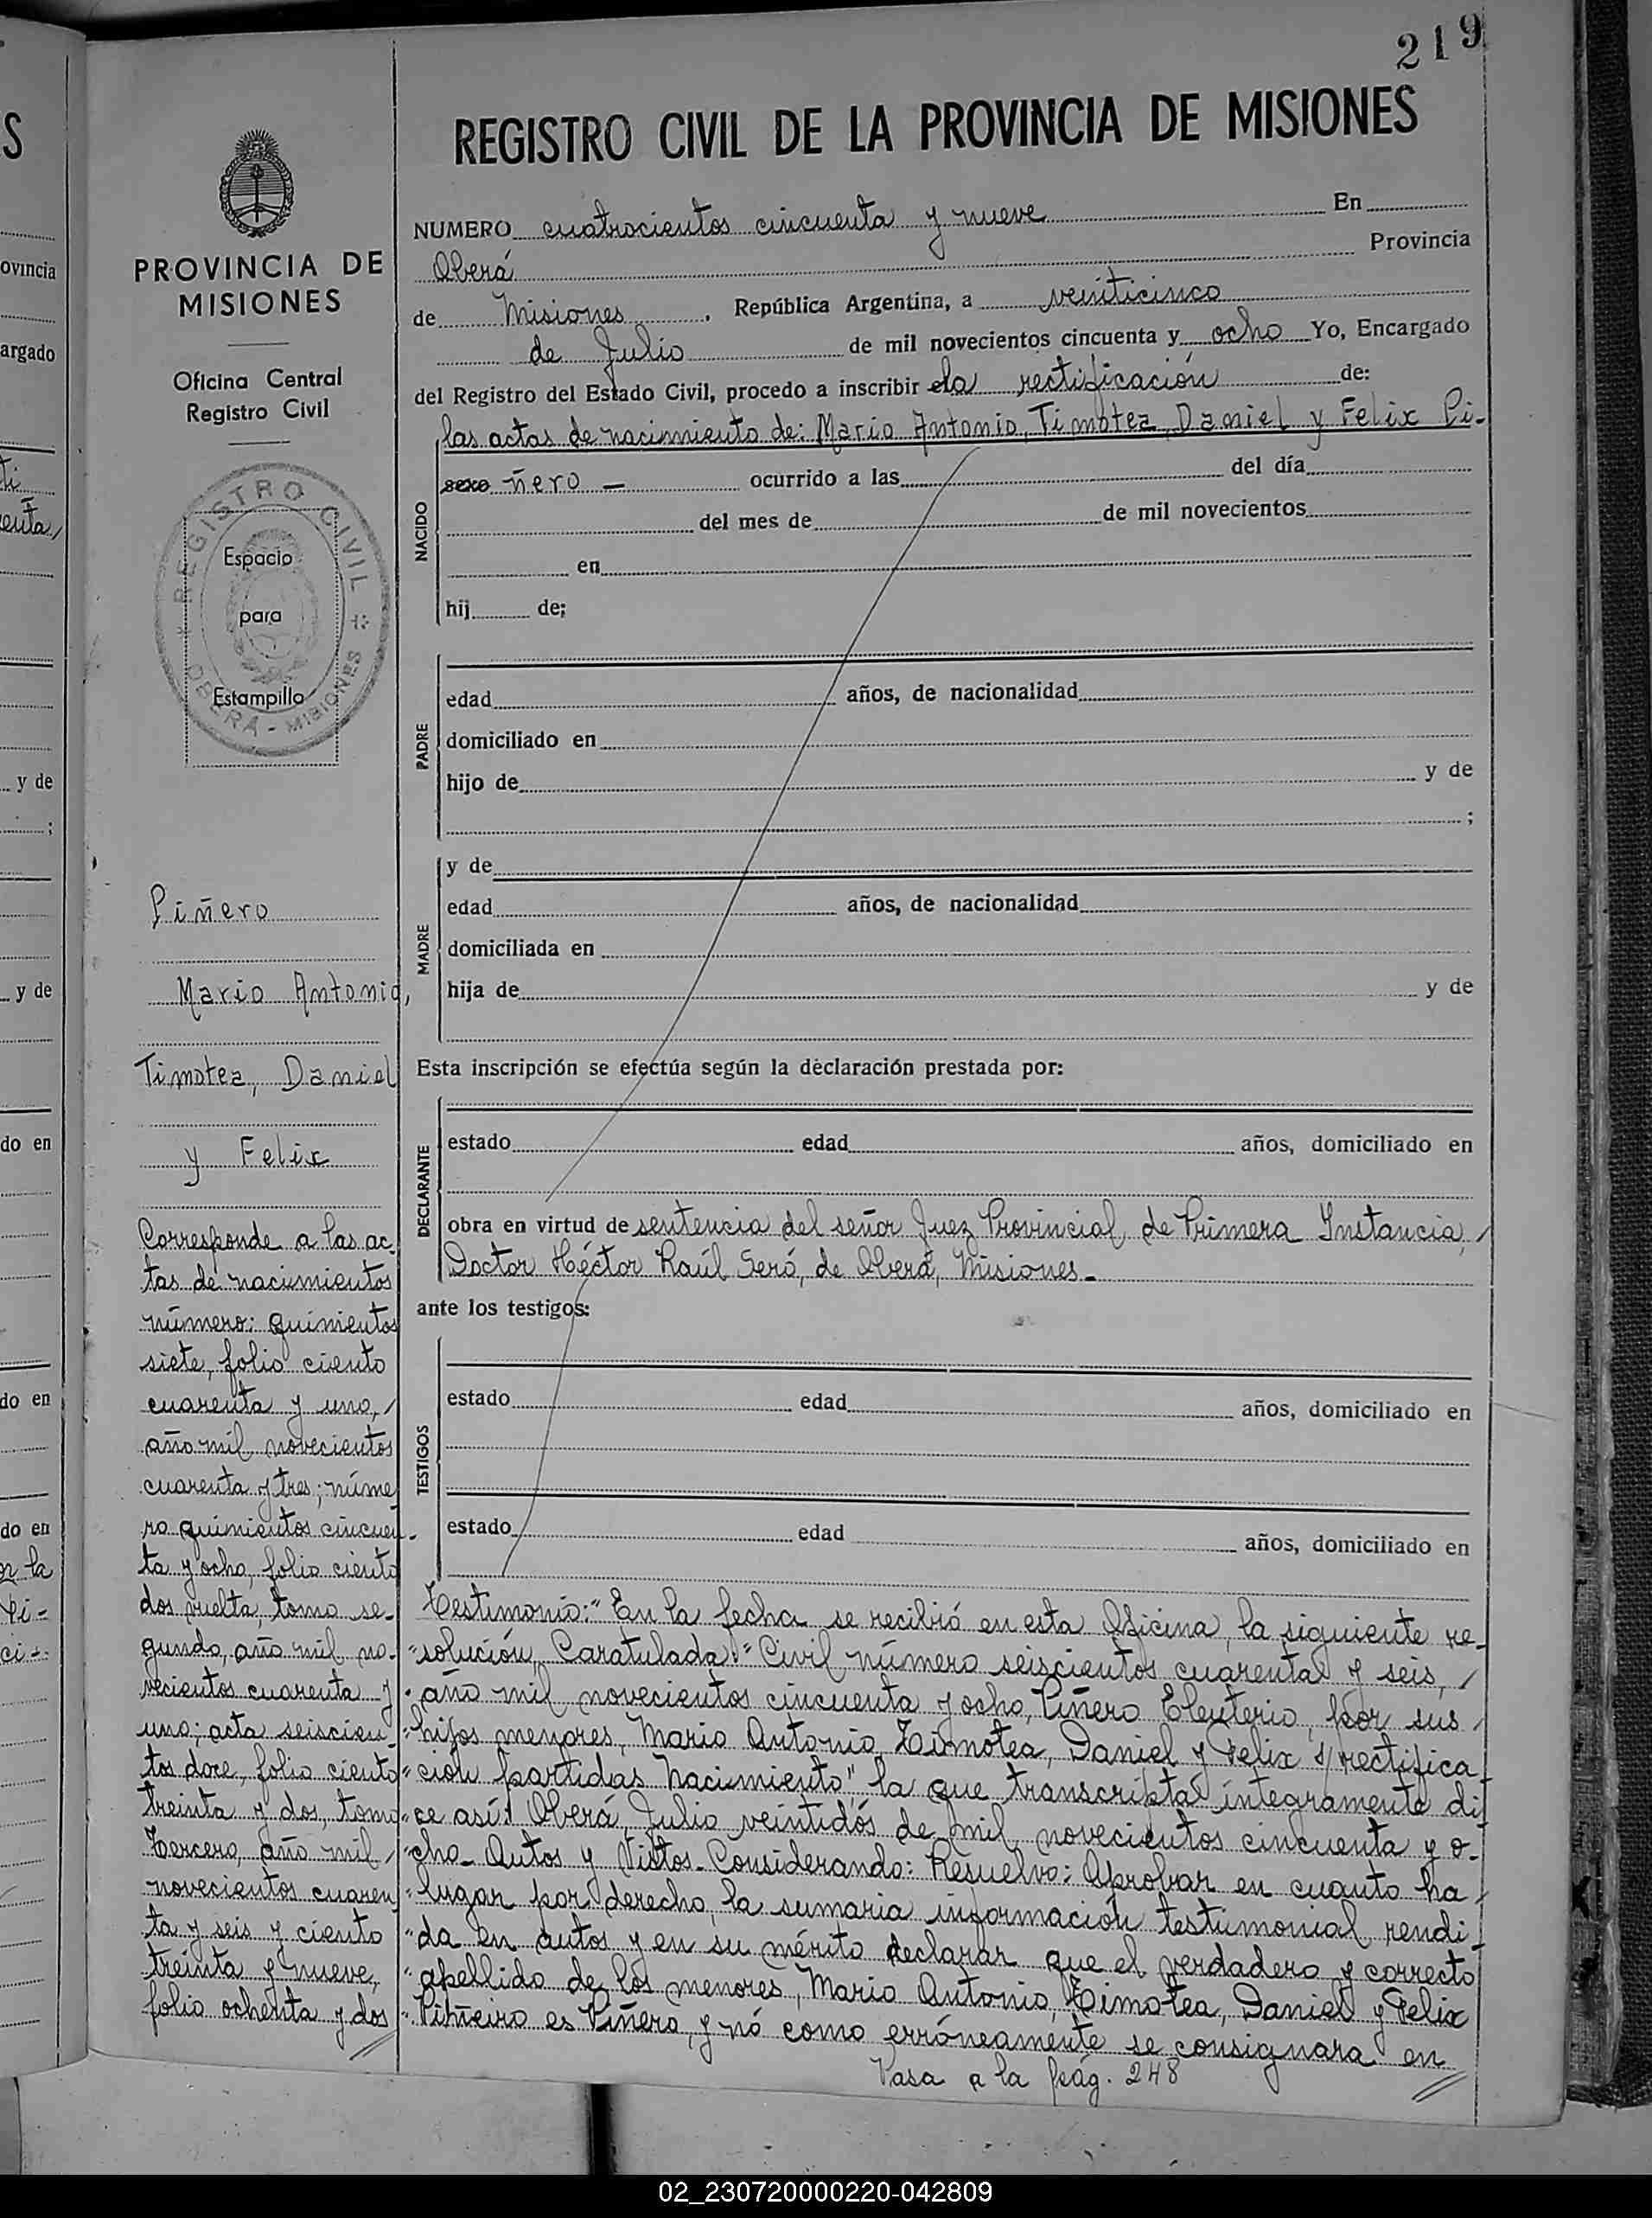 219
REGISTRO CIVIL DE LA PROVINCIA DE MISIONES
PROVINCIA DE
MISIONES
Oficina Central
Registro Civil
REGISTRO CIVIL
OBERÁ - MISIONES
Espacio
para
Estampilla
Piñero
Mario Antonio,
Timotea, Daniel
y Felix
Corresponde a las ac-
tas de nacimientos
número: quinientos
siete, folio ciento
cuarenta y uno,
año mil novecientos
cuarenta y tres; núme
ro quinientos cincuen-
ta y ocho, folio ciento
dos vuelta, tomo se-
gundo, año mil no-
vecientos cuarenta y
uno; acta seiscien-
tos doce, folio ciento
treinta y dos, tomo
tercero, año mil
novecientos cuaren
ta y seis y ciento
treinta y nueve,
folio ochenta y dos
NUMERO cuatrocientos cincuenta y nueve En
Oberá Provincia
de Misiones, República Argentina, a veinticinco
de Julio de mil novecientos cincuenta y ocho Yo, Encargado
del Registro del Estado Civil, procedo a inscribir el la rectificación de:
las actas de nacimiento de: Mario Antonio, Timotea, Daniel y Felix Pi-
NACIDO
sexo ñero - ocurrido a las del día
del mes de de mil novecientos
en
hij de;
PADRE
edad años, de nacionalidad
domiciliado en
hijo de y de
;
MADRE
y de
edad años, de nacionalidad
domiciliada en
hija de y de
Esta inscripción se efectúa según la declaración prestada por:
DECLARANTE
estado edad años, domiciliado en
obra en virtud de sentencia del señor Juez Provincial de Primera Instancia,
Doctor Héctor Raúl Seró, de Oberá, Misiones.-
ante los testigos:
TESTIGOS
estado edad años, domiciliado en
estado edad años, domiciliado en
Testimonio: "En la fecha se recibió en esta Oficina, la siguiente re-
"solución, Caratulada: "Civil número seiscientos cuarenta y seis,
"año mil novecientos cincuenta y ocho, Piñero Eleuterio, por sus
"hijos menores, Mario Antonio, Timotea, Daniel y Felix s/ rectifica
"ción partidas nacimiento", la que transcripta íntegramente di
"ce así: Oberá, Julio veintidós de mil novecientos cincuenta y o-
"cho- Autos y Vistos- Considerando: Resuelvo: Aprobar en cuanto ha
"lugar por derecho, la sumaria información testimonial rendi
"da en autos y en su mérito declarar que el verdadero y correcto
"apellido de los menores, Mario Antonio, Timotea, Daniel y Felix
"Piñeiro es Piñero, y nó como erróneamente se consignara en
Pasa a la pág. 248
02_230720000220-042809